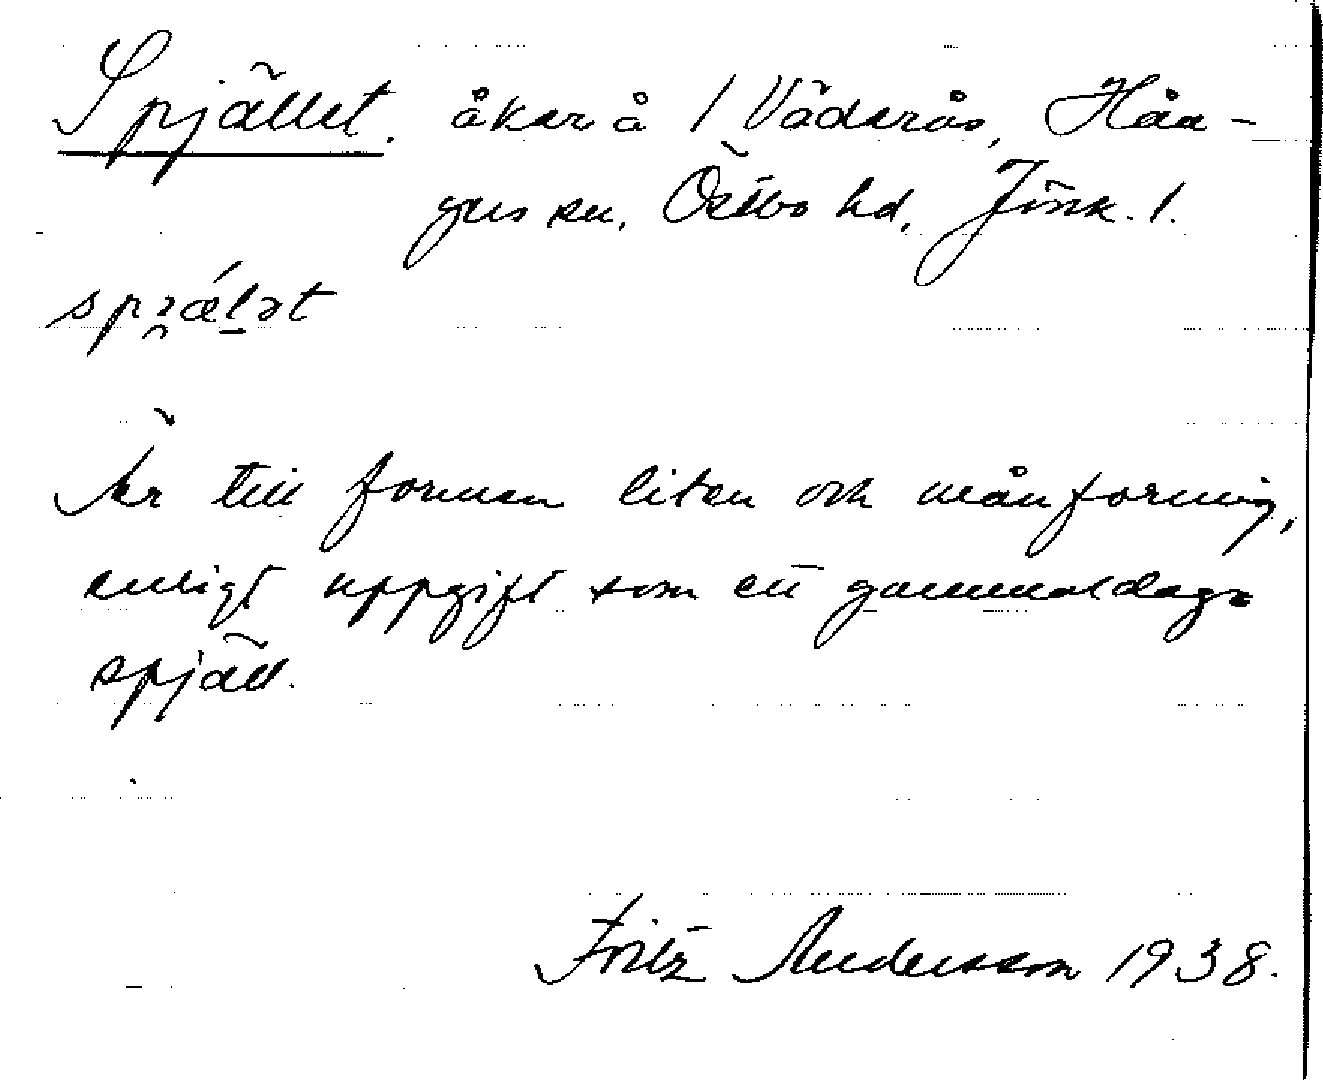 Spjället. åker å 1 Väderås, Håa-
gus sn, Östbo hd, Jönk. l.
spi̯ǽl̠ət
Är till formen liten och månformig,
enligt uppgift som ett gammaldags
spjäll.
Fritz Andersson 1938.